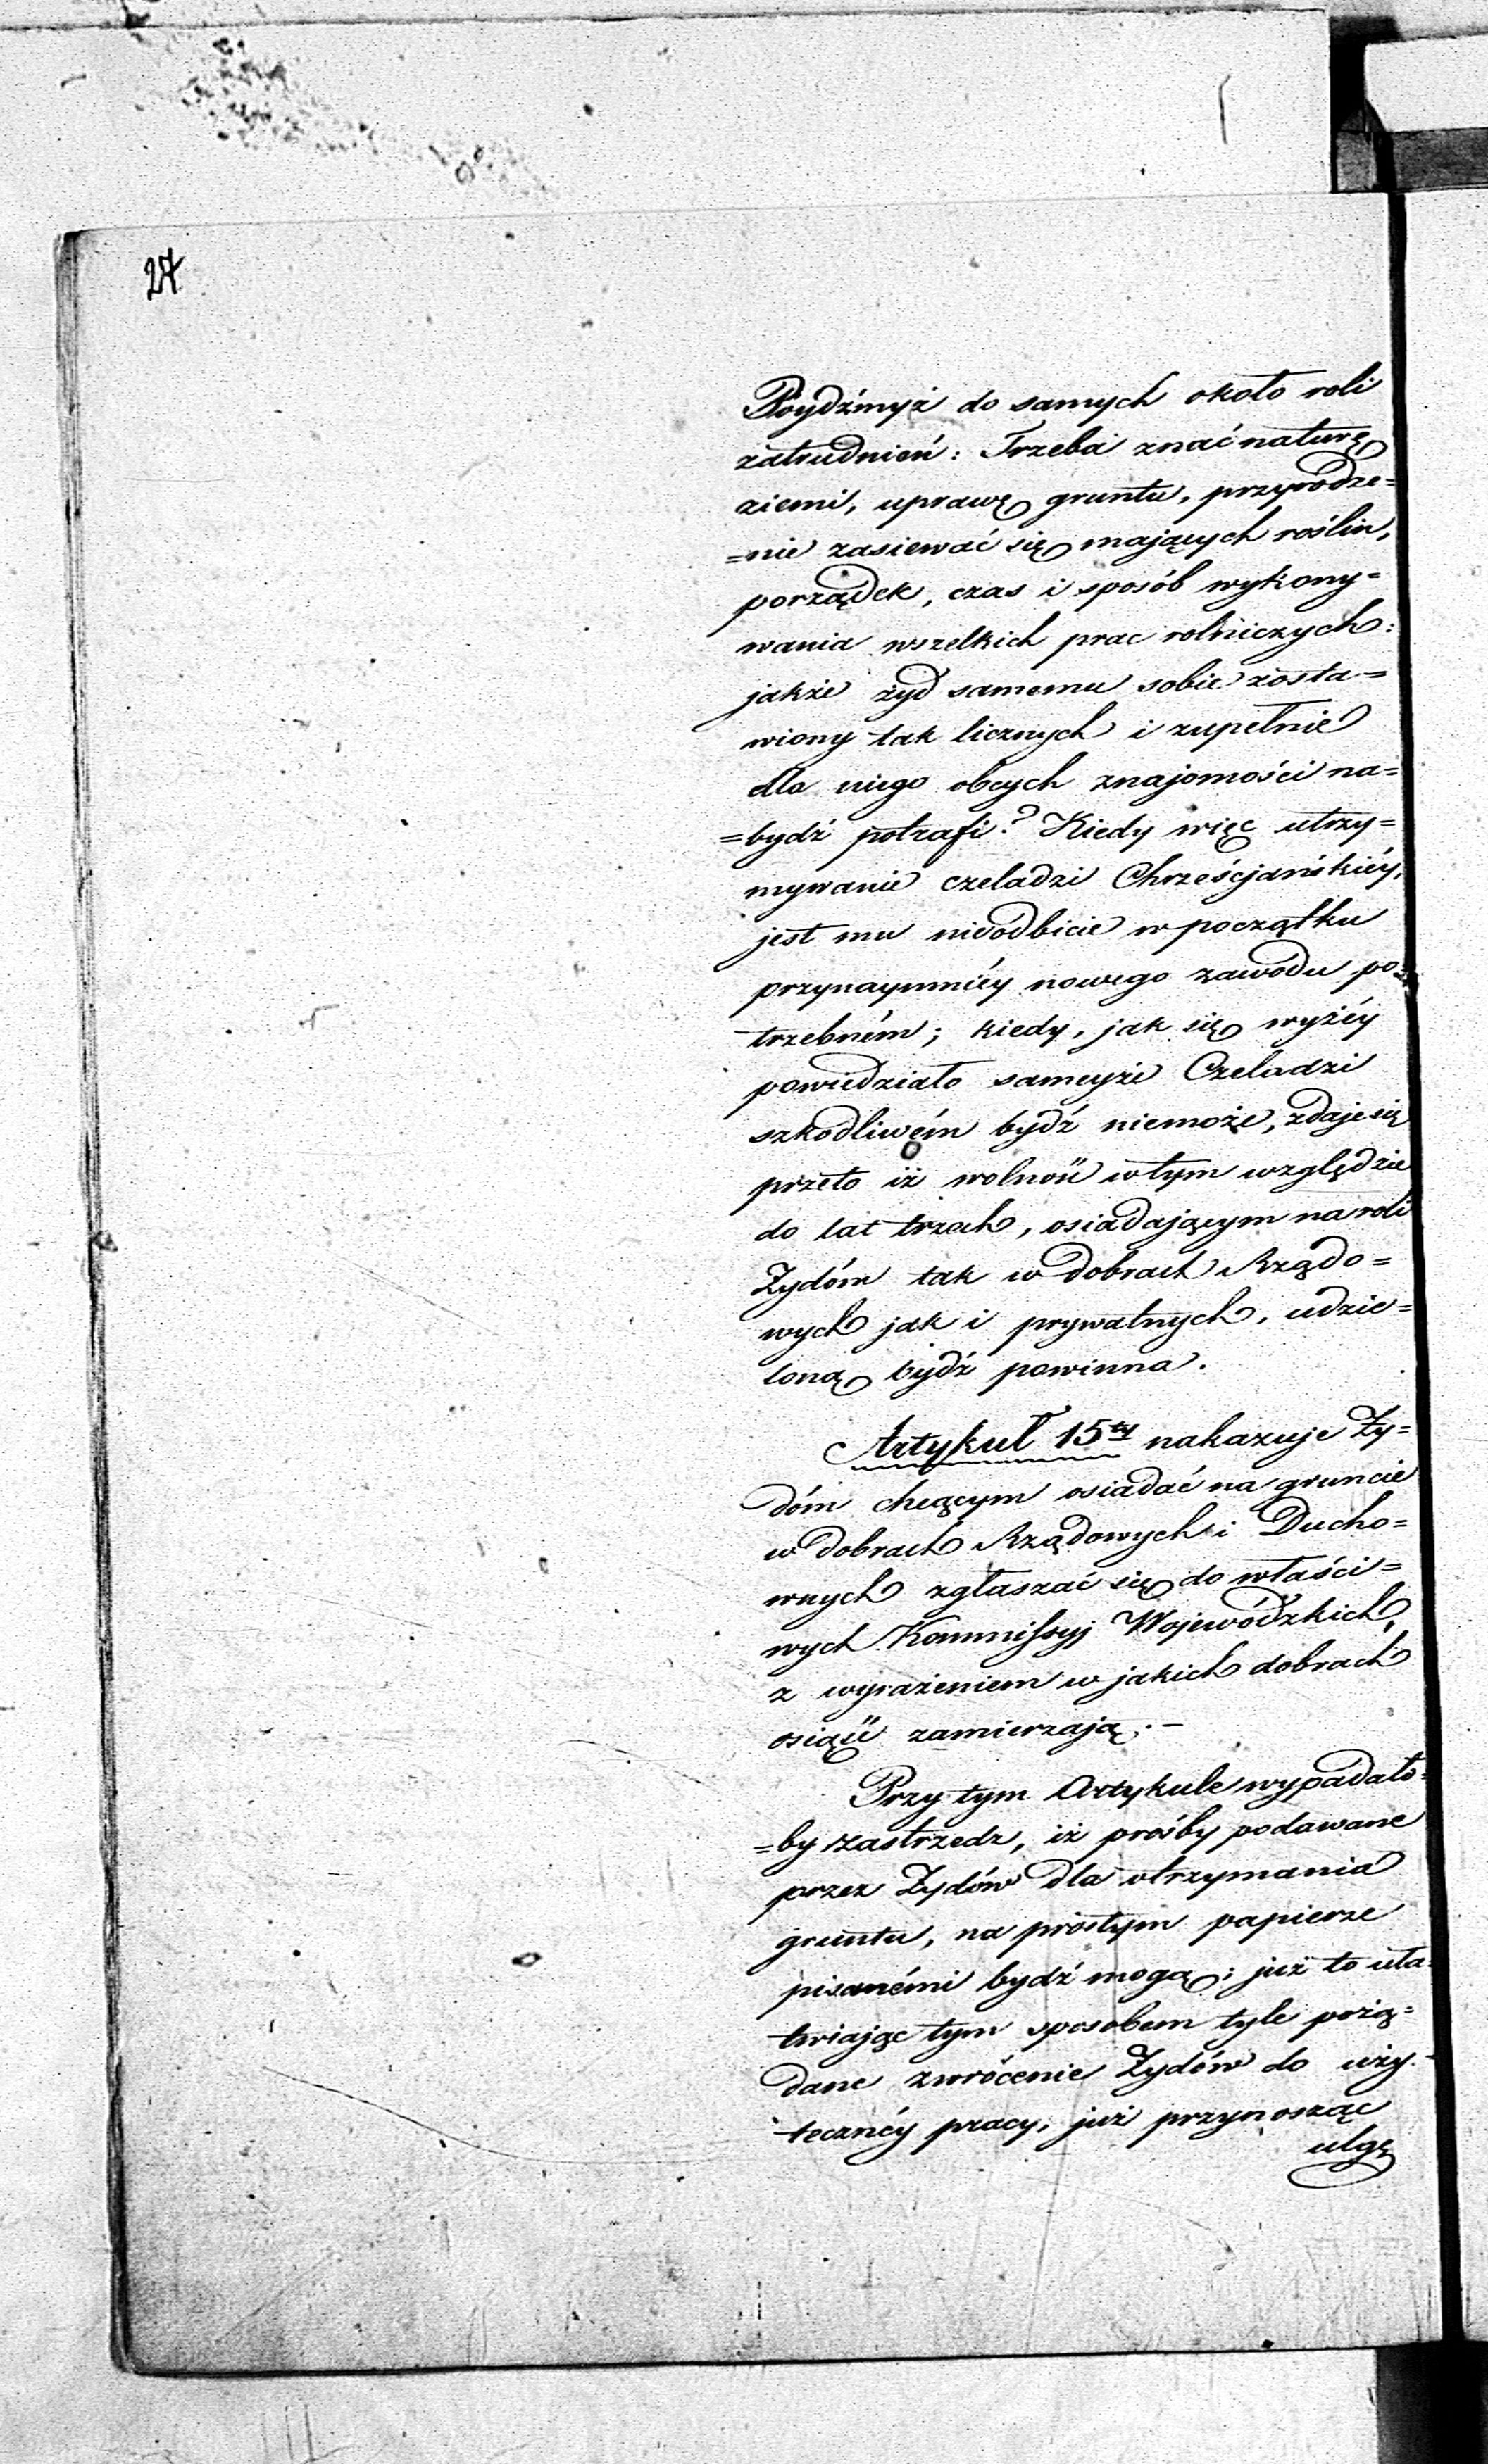 27
Poydźmyż do samych około roli
zatrudnień: Trzeba znać naturę
ziemi, uprawę gruntu, przyrodze=
=nie zasiewać się mających roślin,
porządek, czas i sposób wykony=
wania wszelkich prac rolniczych:
jakże żyd samemu sobie zosta=
wiony tak licznych i zupełnie
dla niego obcych znajomości na=
=bydź potrafi? Kiedy więc utrzy=
mywanie czeladzi Chrześcjańskiéy,
jest mu nieodbicie w początku
przynaymniéy nowego zawodu po=
trzebném; kiedy, jak się wyżéy
powiedziało sameyże Czeladzi
szkodliwém bydź niemoże, zdaje się
przeto iż wolność w tym względzie
do lat trzech, osiadającym na roli
Żydóm tak w dobrach Rządo=
wych jak i prywatnych, udzie=
loną bydź powinna.
Artykuł 15ty nakazuje Ży=
dóm chcącym osiadać na gruncie
w dobrach Rządowych i Ducho=
wnych zgłaszać się do właści=
wych Kommissyj Wojewódzkich,
z wyrażeniem w jakich dobrach
osiąść zamierzają.—
Przy tym Artykule wypadało=
=by zastrzedz, iż prośby podawane
przez Żydów dla otrzymania
gruntu, na prostym papierze
pisanémi bydź mogą; już to uła=
twiając tym sposobem tyle pożą=
dane zwrócenie Żydów do uży=
tecznéy pracy, już przynosząc
ulgę